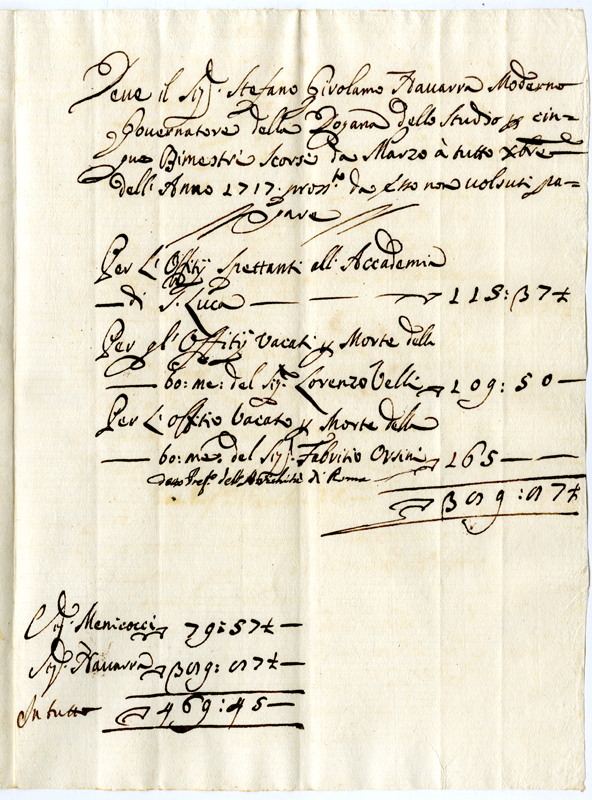 Deve il Sig.r Stefano Girolamo Navarra Moderno
Governatore della Dogana dello Studio p cin=
que Bimestri scorsi da Marzo à tutto Xbre
dell'Anno 1717. pross.to da esso non volsuti pa=
gare
Per l'Offitij spettanti all'Accademia
— di S. Luca — — — 115: 37½
Per gl'Offitij Vacati p Morte della
— bo: me: del Sig.r Lorenzo Velli 109: 50 —
Per l'Offitio Vacato p Morte della
— bo: me: del Sig.r Fabritio Orsini 165 — —
dell' Archivio di Roma
389: 87½
Sig.r Menicocci 79: 57½ —
Sig.r Navarra 389: 87½ —
In tutto 469: 45 —